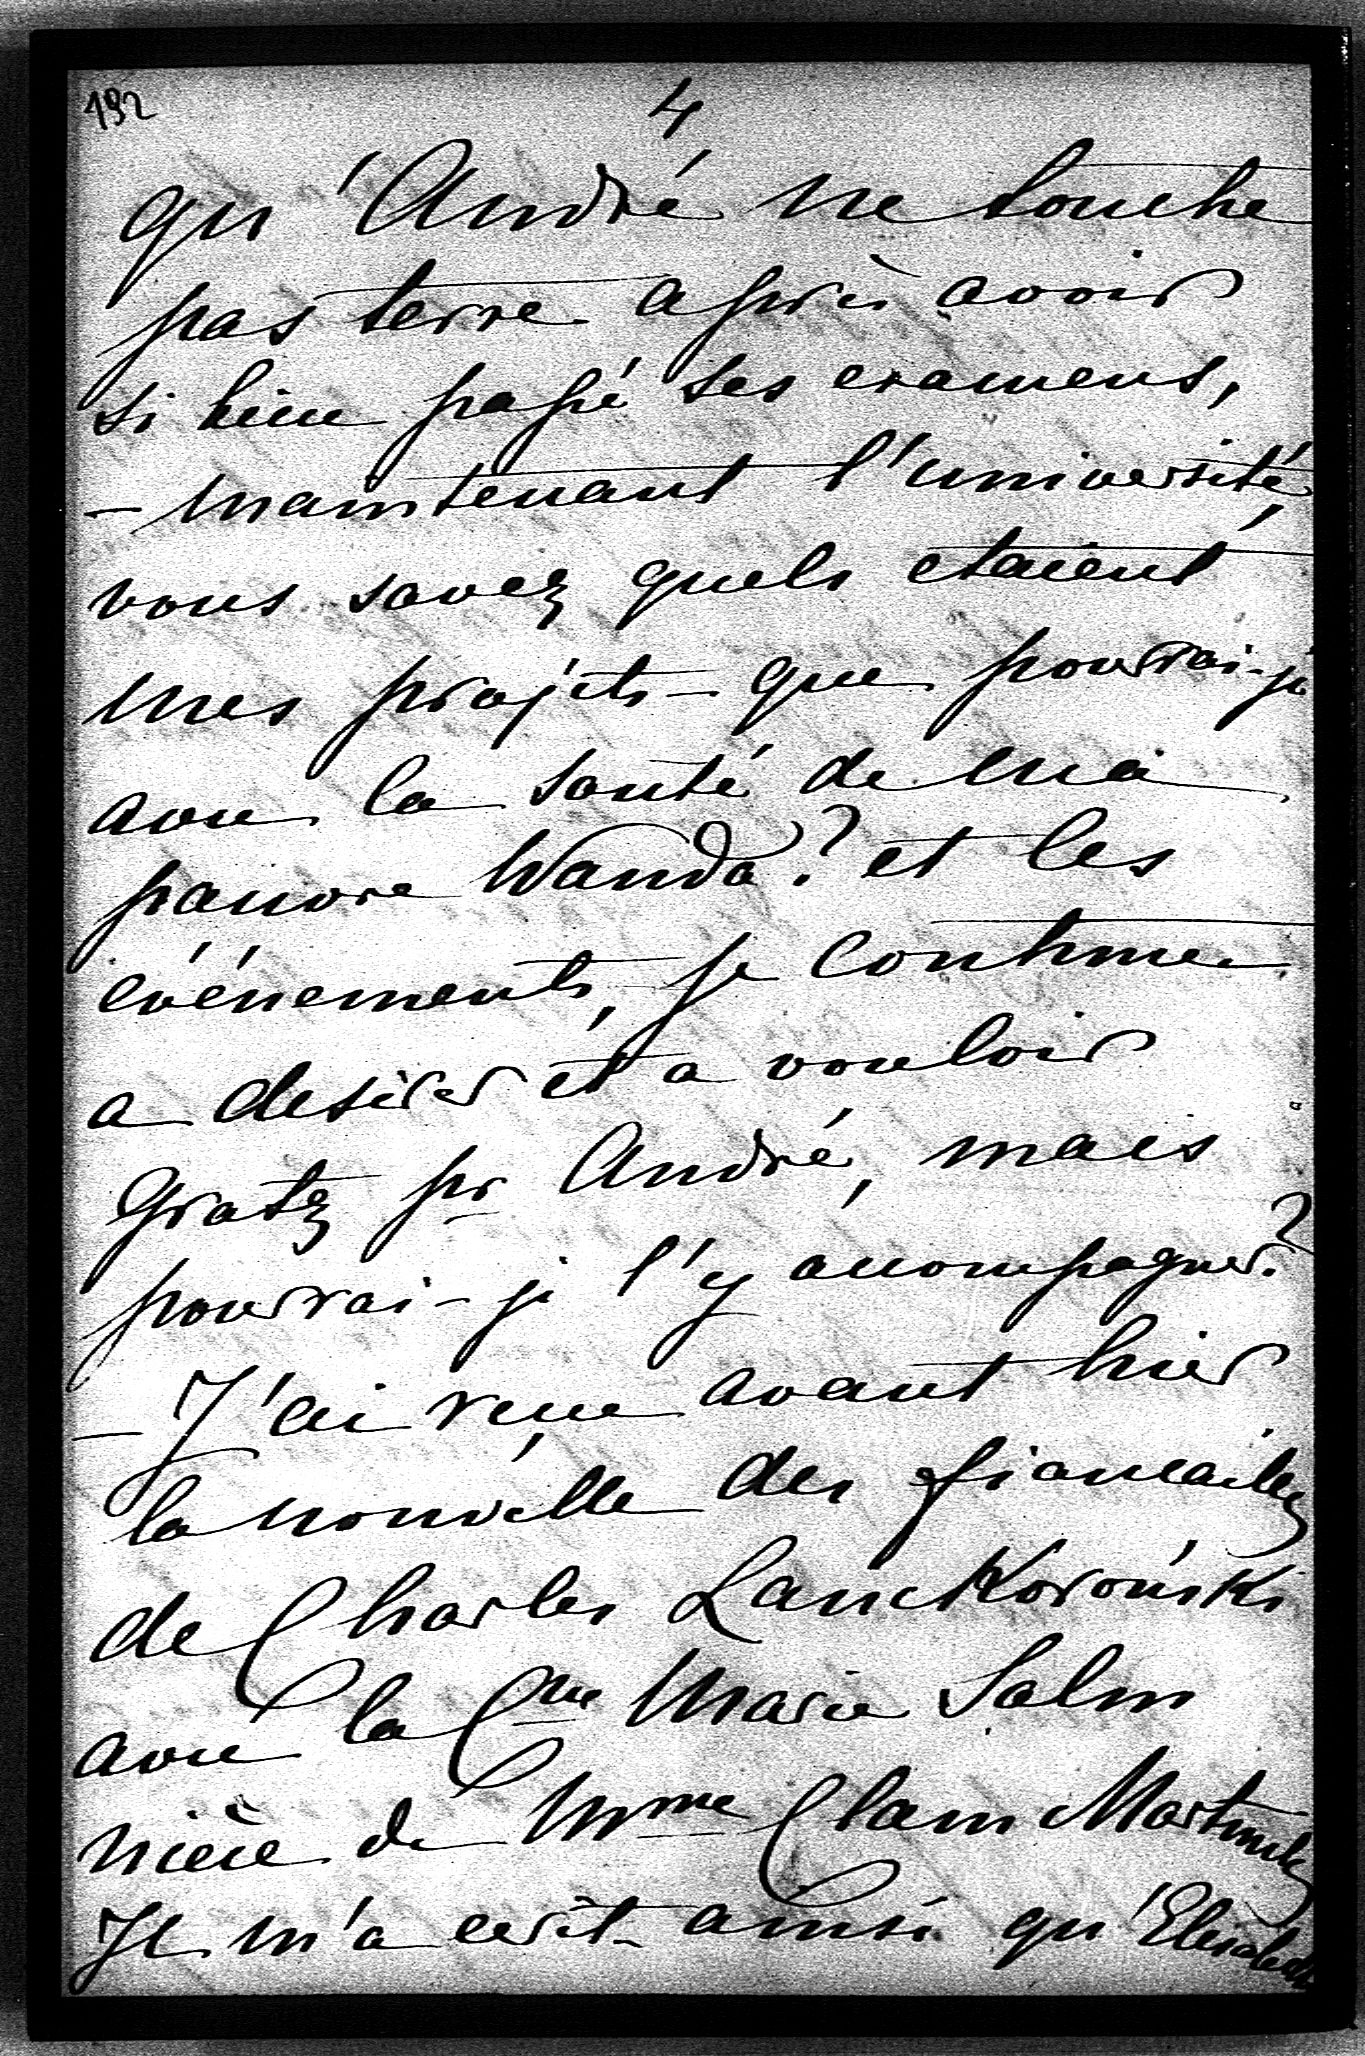 192
4
qu'André ne touche
pas terre après avoir
si bien passé ses examens,
– maintenant l'université,
vous savez quels etaient
mes projets – que pourrai-je
avec la santé de ma
pauvre Wanda? et les
événements, je continue
a desirer et a vouloir
Gratz pr André, mais
pourrai-je l'y accompagner?
– J'ai reçue avant hier
la nouvelle des fiancailles
de Charles Lanckoroński
avec la Csse Marie Salm
nièce de Mme Clam Martinitz
Il m'a ecrit ainsi qu'Elisabeth